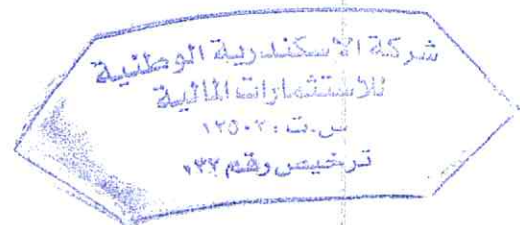 شركة الاسكندرية الوطنية
للاستثمارات المالية
س.ت : ١٢٥٠٢
ترخيص رقم ٠٣٢